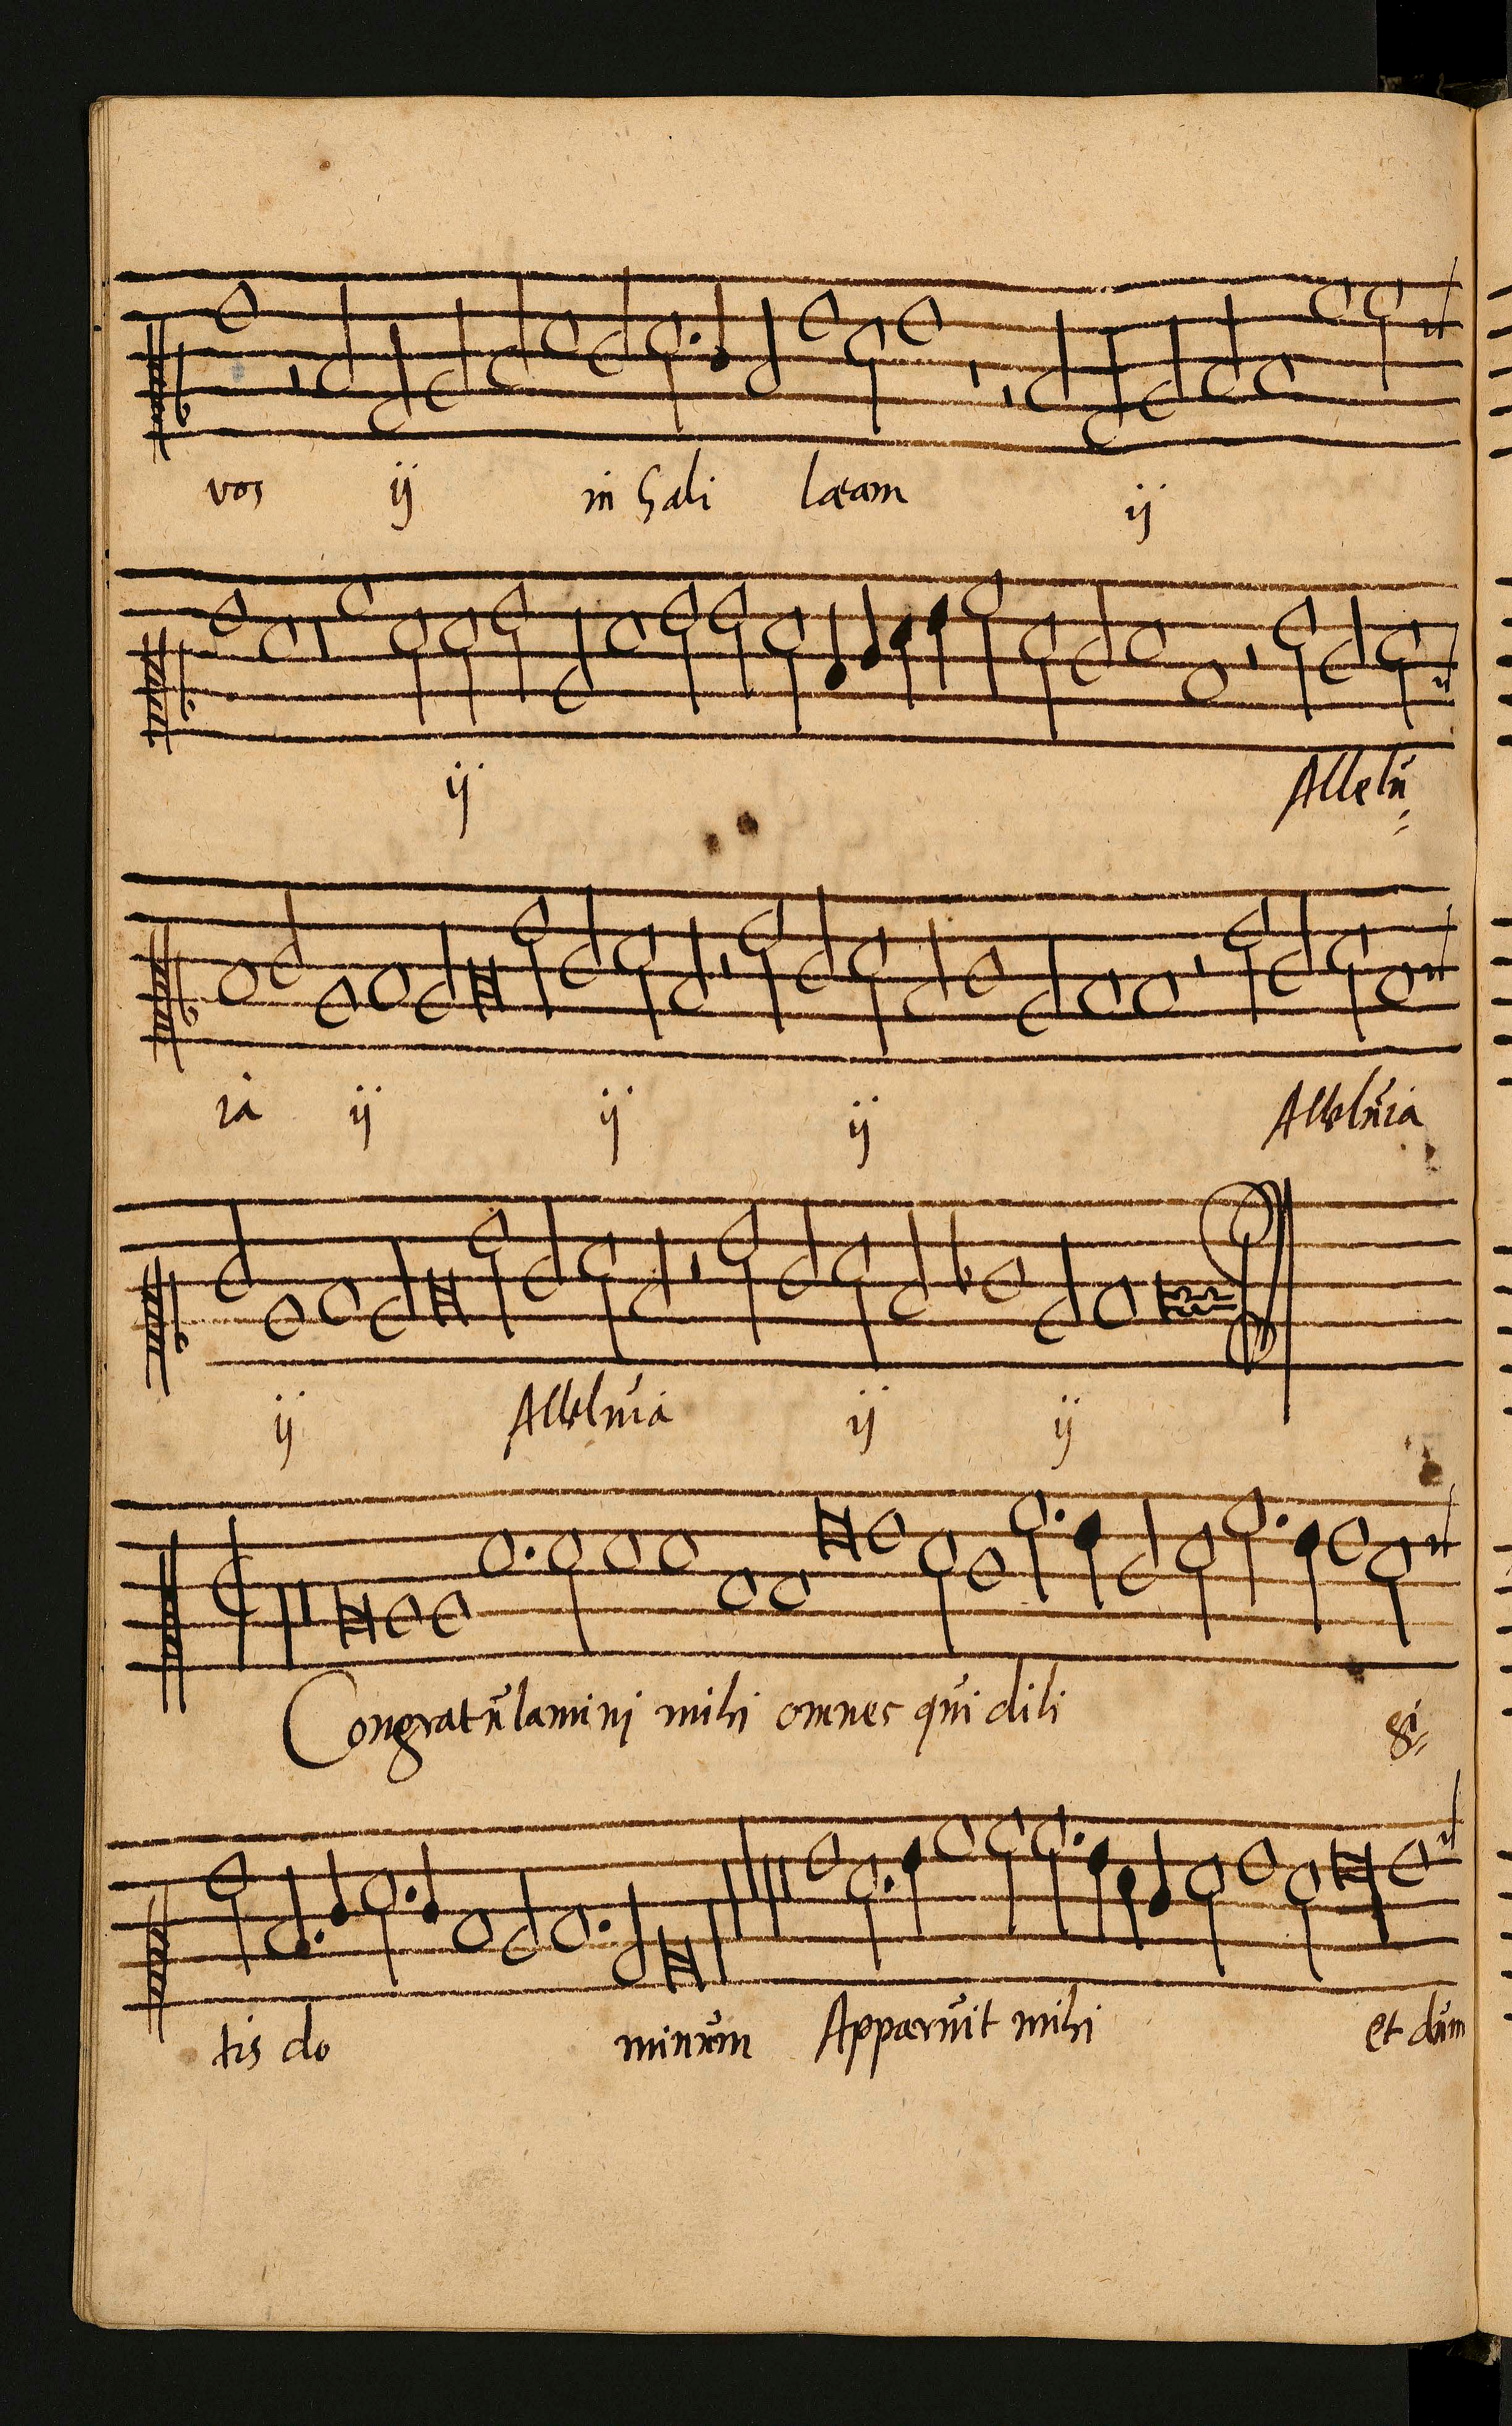 vos ij in Gali læam ij
ij Allelu=
ia ij ij ij Alleluia
ij Alleluia ij ij
Congratulamini mihi omnes qui dili gi=
tis do minum Apparuit mihi et dum